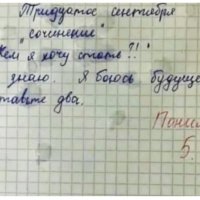 Тридцатое сентября
"сочинение"
Кем я хочу стать?!"
знаю. Я боюсь будуще
ставьте два.
Понил
5.